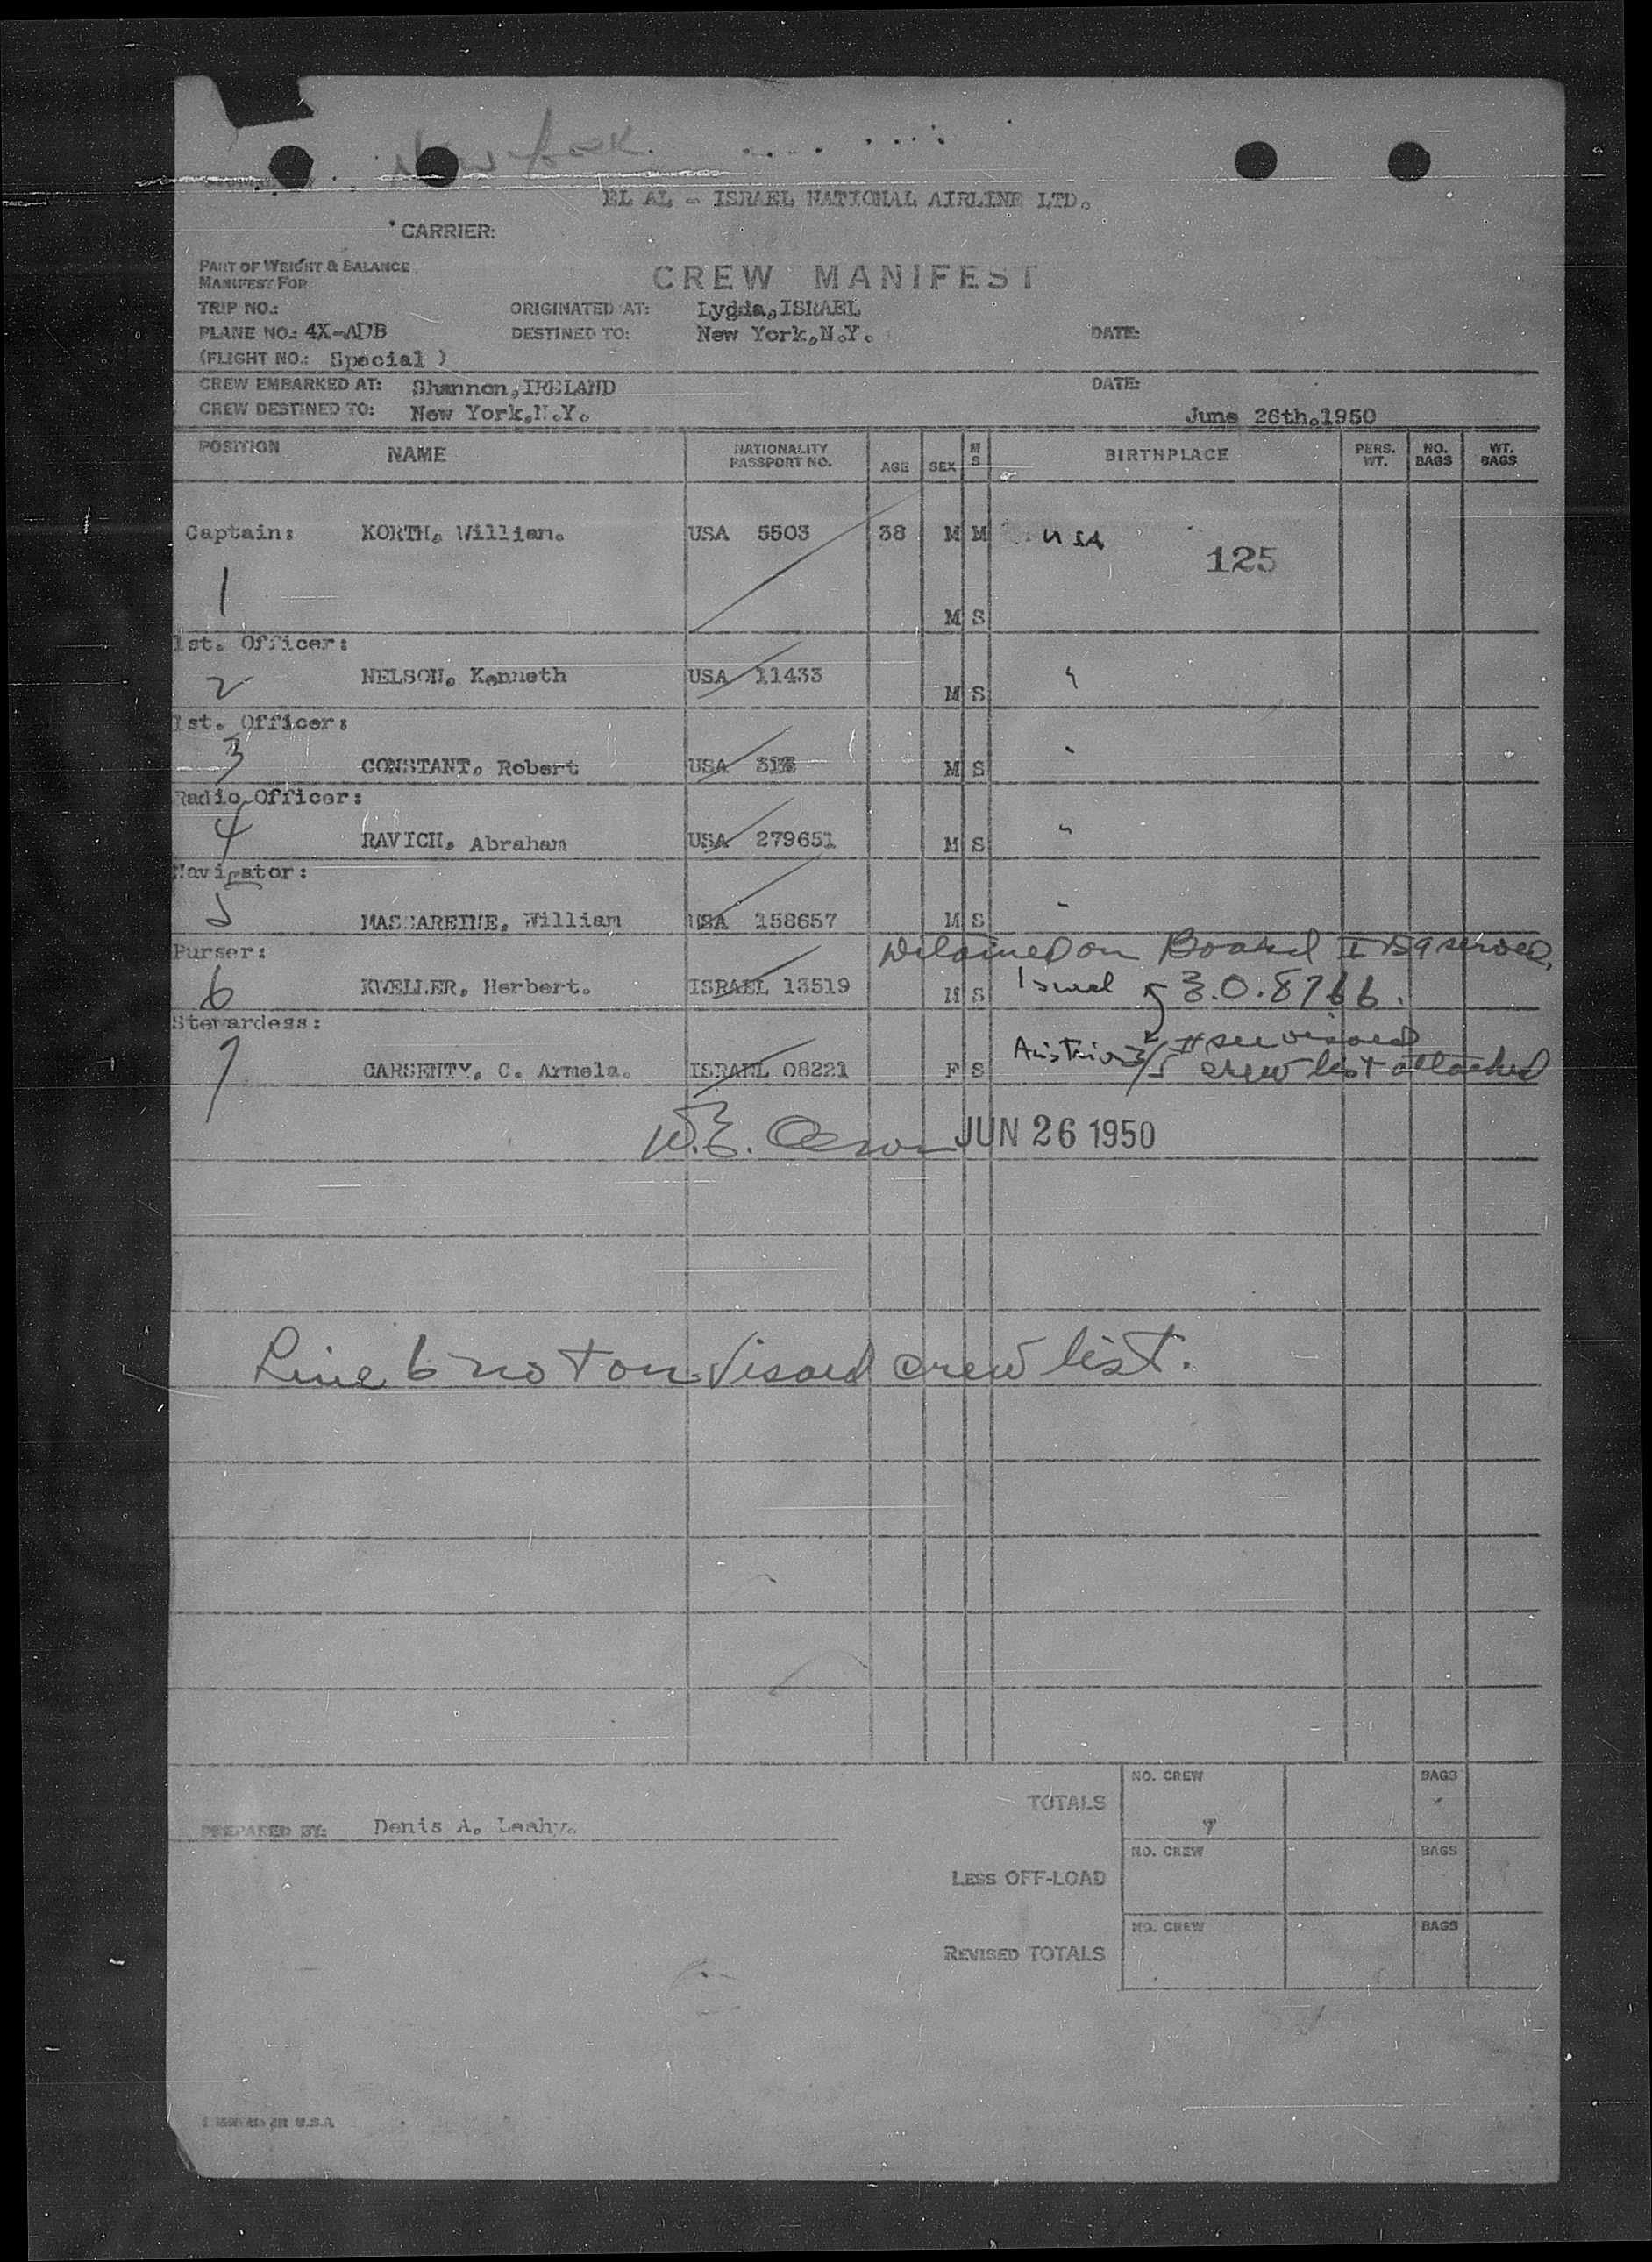 New York
EL AL - ISRAEL NATIONAL AIRLINE LTD.
CARRIER:
PART OF WEIGHT & BALANCE
MANIFEST FOR
CREW MANIFEST
TRIP NO.: ORIGINATED AT: Lydda, ISRAEL
PLANE NO.: 4X-ADB DESTINED TO: New York, N.Y. DATE:
(FLIGHT NO.: Special )
CREW EMBARKED AT: Shannon, IRELAND DATE:
CREW DESTINED TO: New York, N.Y. June 26th.1950
POSITION NAME NATIONALITY PASSPORT NO. AGE SEX M S BIRTHPLACE PERS. WT. NO. BAGS WT. BAGS
Captain: KORTH, William. USA 5503 38 M M USA
125
1 M S
1st. Officer:
2 NELSON, Kenneth USA 11433 M S "
1st. Officer:
3 CONSTANT, Robert USA M S "
Radio Officer:
4 RAVICH, Abraham USA 279651 M S "
Navigator:
5 William USA 158657 M S "
Purser: Detained on Board I 259 served.
6 KWELLER, Herbert. ISRAEL 13519 M S Israel 3.0.8766.
Stewardess: # see visaed
7 CARSENTY, C. Armela. ISRAEL 08221 F S Austria crew list attached
JUN 26 1950
Line 6 not on visaed crew list.
TOTALS NO. CREW 7 BAGS
PREPARED BY: Denis A. Leahy.
LESS OFF-LOAD NO. CREW BAGS
REVISED TOTALS NO. CREW BAGS
U.S.A.